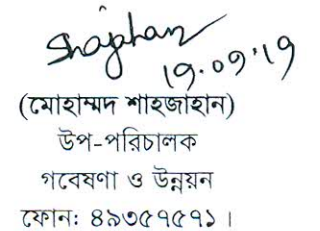 Shajahan
19.09'19
(মোহাম্মদ শাহজাহান)
উপ-পরিচালক
গবেষণা ও উন্নয়ন
ফোন: ৪৯৩৫৭৫৭১।